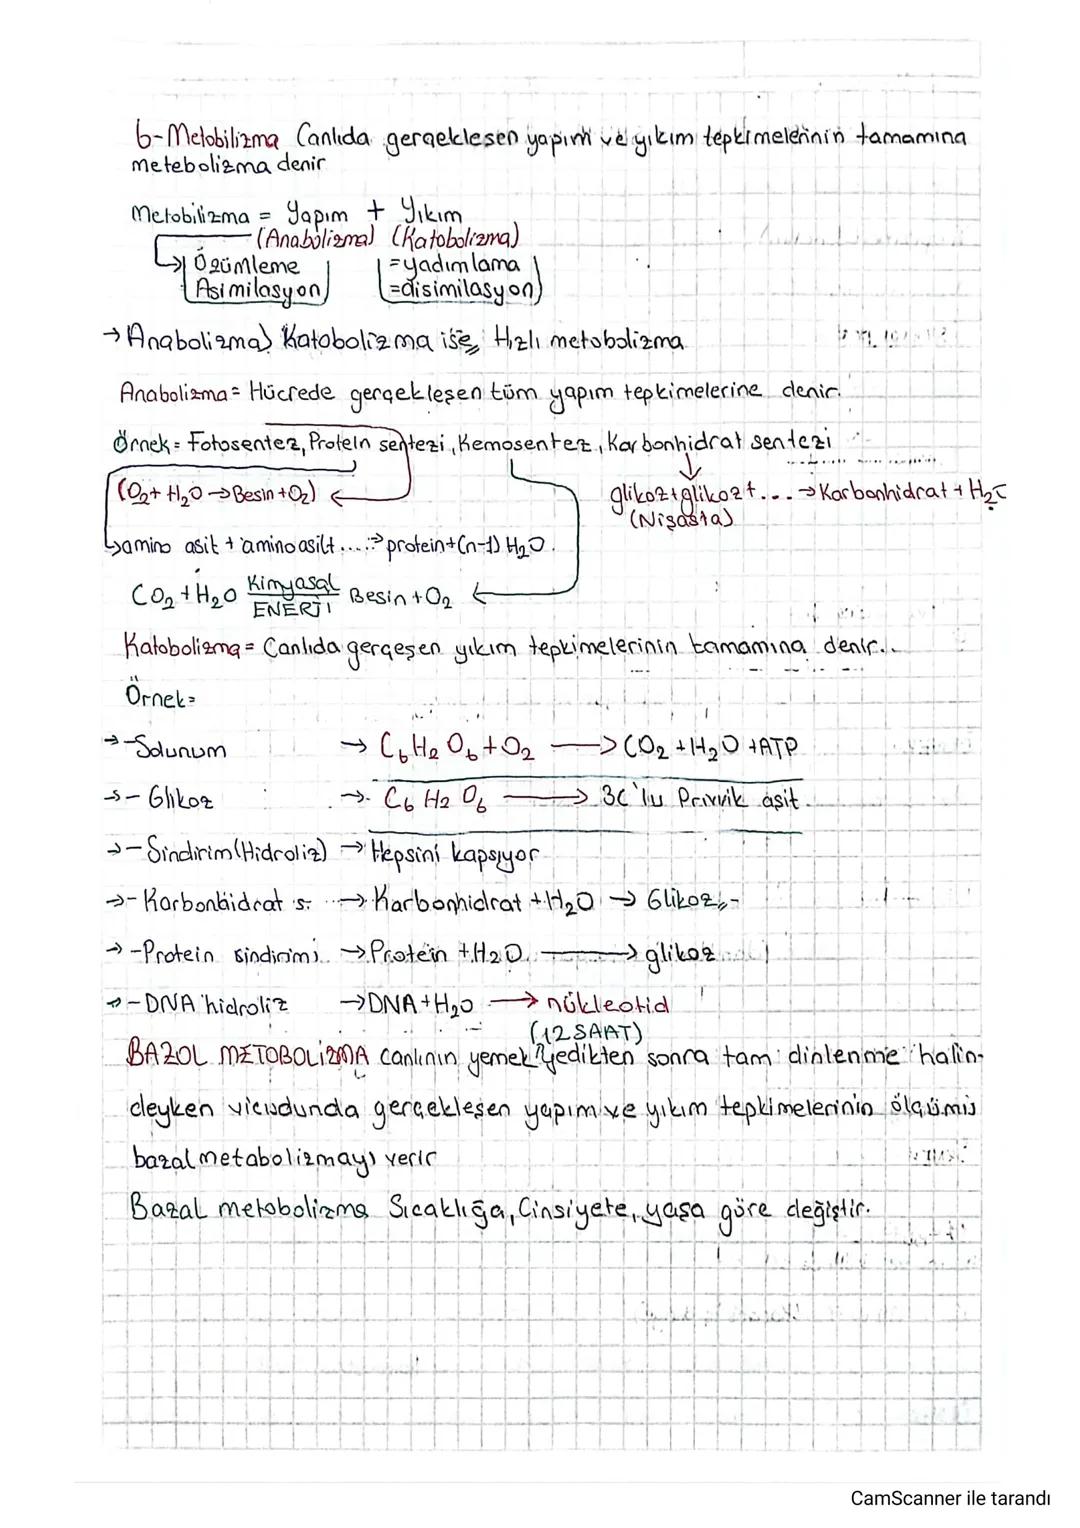 6-Metobilizma Canlıda gerçekleşen yapım ve yıkım tepkimelerinin tamamına
metebolizma denir
Metobilizma = Yapım + Yıkım
(Anabolizma) (Katobolizma)
Özümleme =yadımlama
Asimilasyon =disimilasyon)
→Anabolizma> Katobolizma ise, Hızlı metobolizma
Anabolizma= Hücrede gerçekleşen tüm yapım tepkimelerine denir.
Örnek= Fotosentez, Protein sentezi, Kemosentez, Karbonhidrat sentezi
(O2+ H2O→Besin+O2) glikoz+glikozt...→Karbonhidrat+H2O
(Nişasta)
→amino asit + aminoasilt.....→protein+(n-1) H2O.
CO2+H2O Kimyasal Besin+O2
ENERJİ
Katobolizma= Canlıda gerçeşen yıkım tepkimelerinin tamamına denir..
Örnek=
→-Solunum → C6H2O6+O2 → CO2+H2O+ATP
→-Glikoz →. C6 H2 O6 → 3C'lu Privvik asit.
→-Sindirim(Hidroliz) →Hepsini kapsıyor
→-Karbonhidrat s. →Karbonhidrat+H2O → Glikoz
→-Protein sindirimi →Protein+H2O. → glikoz
→-DNA hidroliz →DNA+H2O → nükleotid
(12SAAT)
BAZOL METOBOLİZMA canlının yemek yedikten sonra tam dinlenme halin-
deyken vicudunda gerçekleşen yapım ve yıkım tepkimelerinin ölçümiş
bazal metabolizmayı verir
Bazal metobolizma Sıcaklığa, Cinsiyete, yaşa göre değiştir.
CamScanner ile tarandı